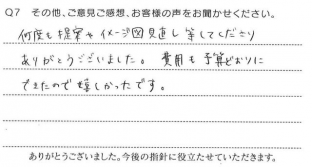 Q7 その他、ご意見ご感想、お客様の声をお聞かせください。
何度も提案やイメージ図見直し等してくださり
ありがとうございました。費用も予算どおりに
できたので嬉しかったです。
ありがとうございました。今後の指針に役立たせていただきます。